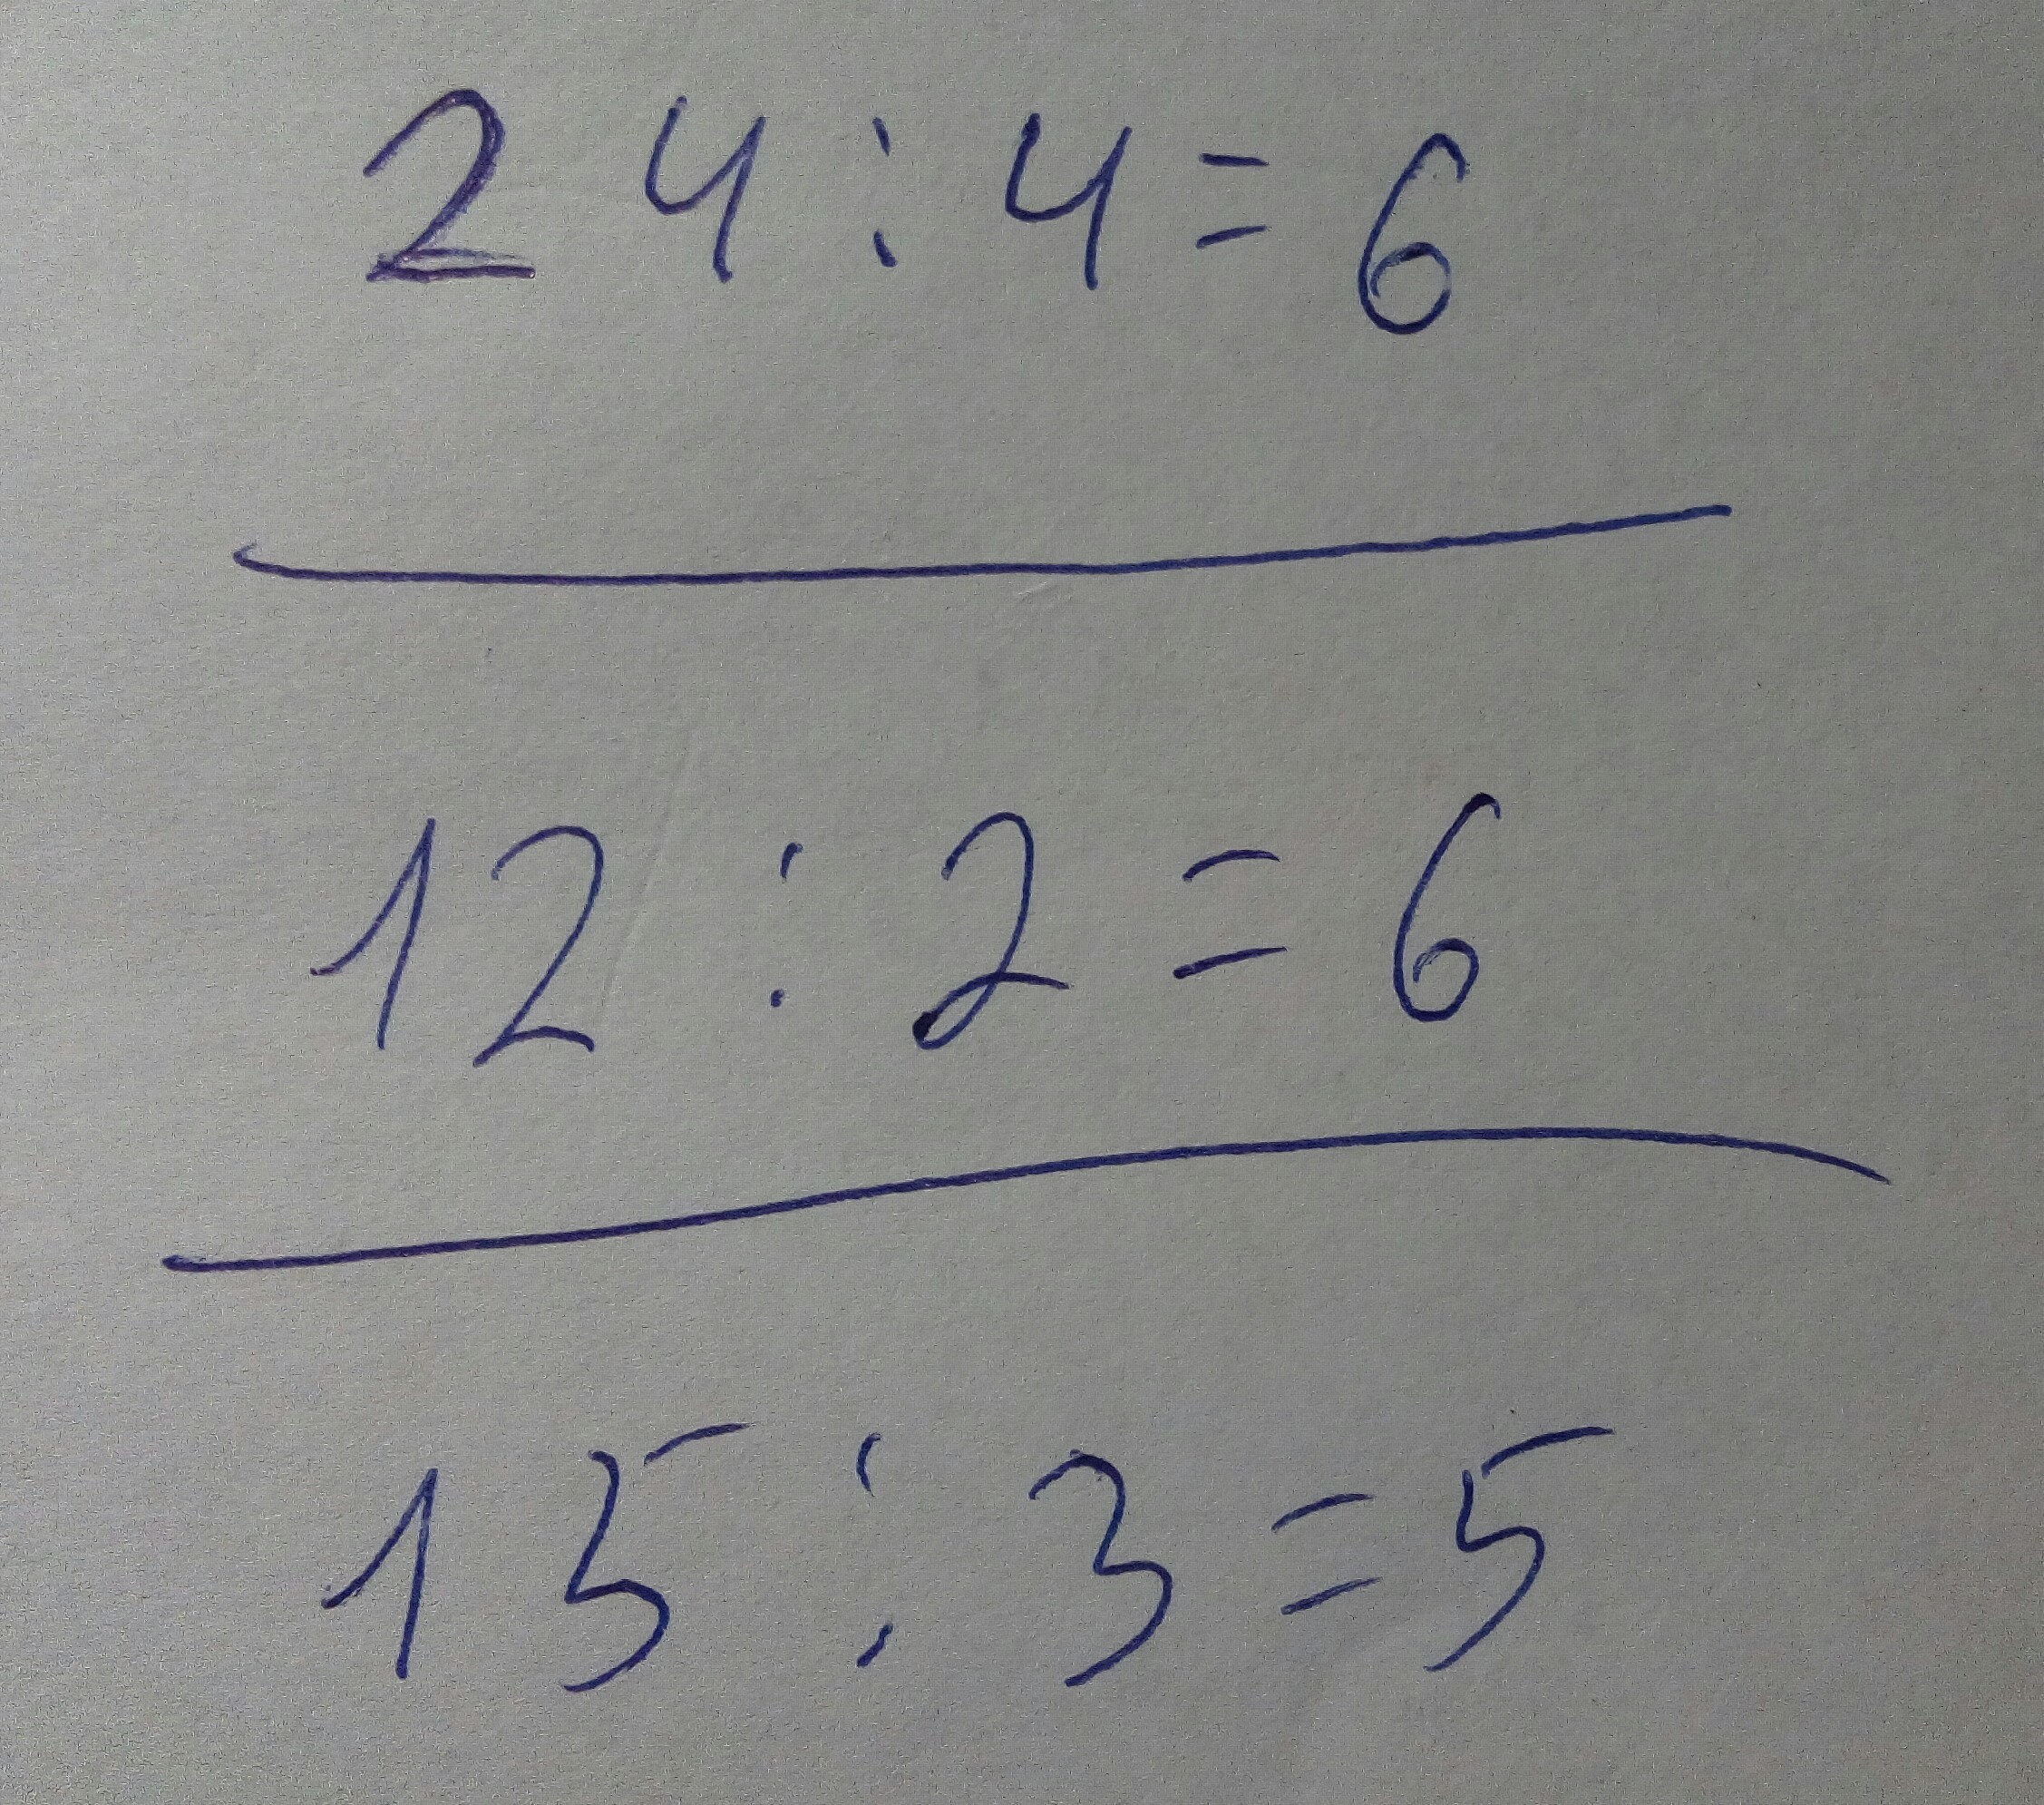 24:4=6
12:2=6
15:3=5